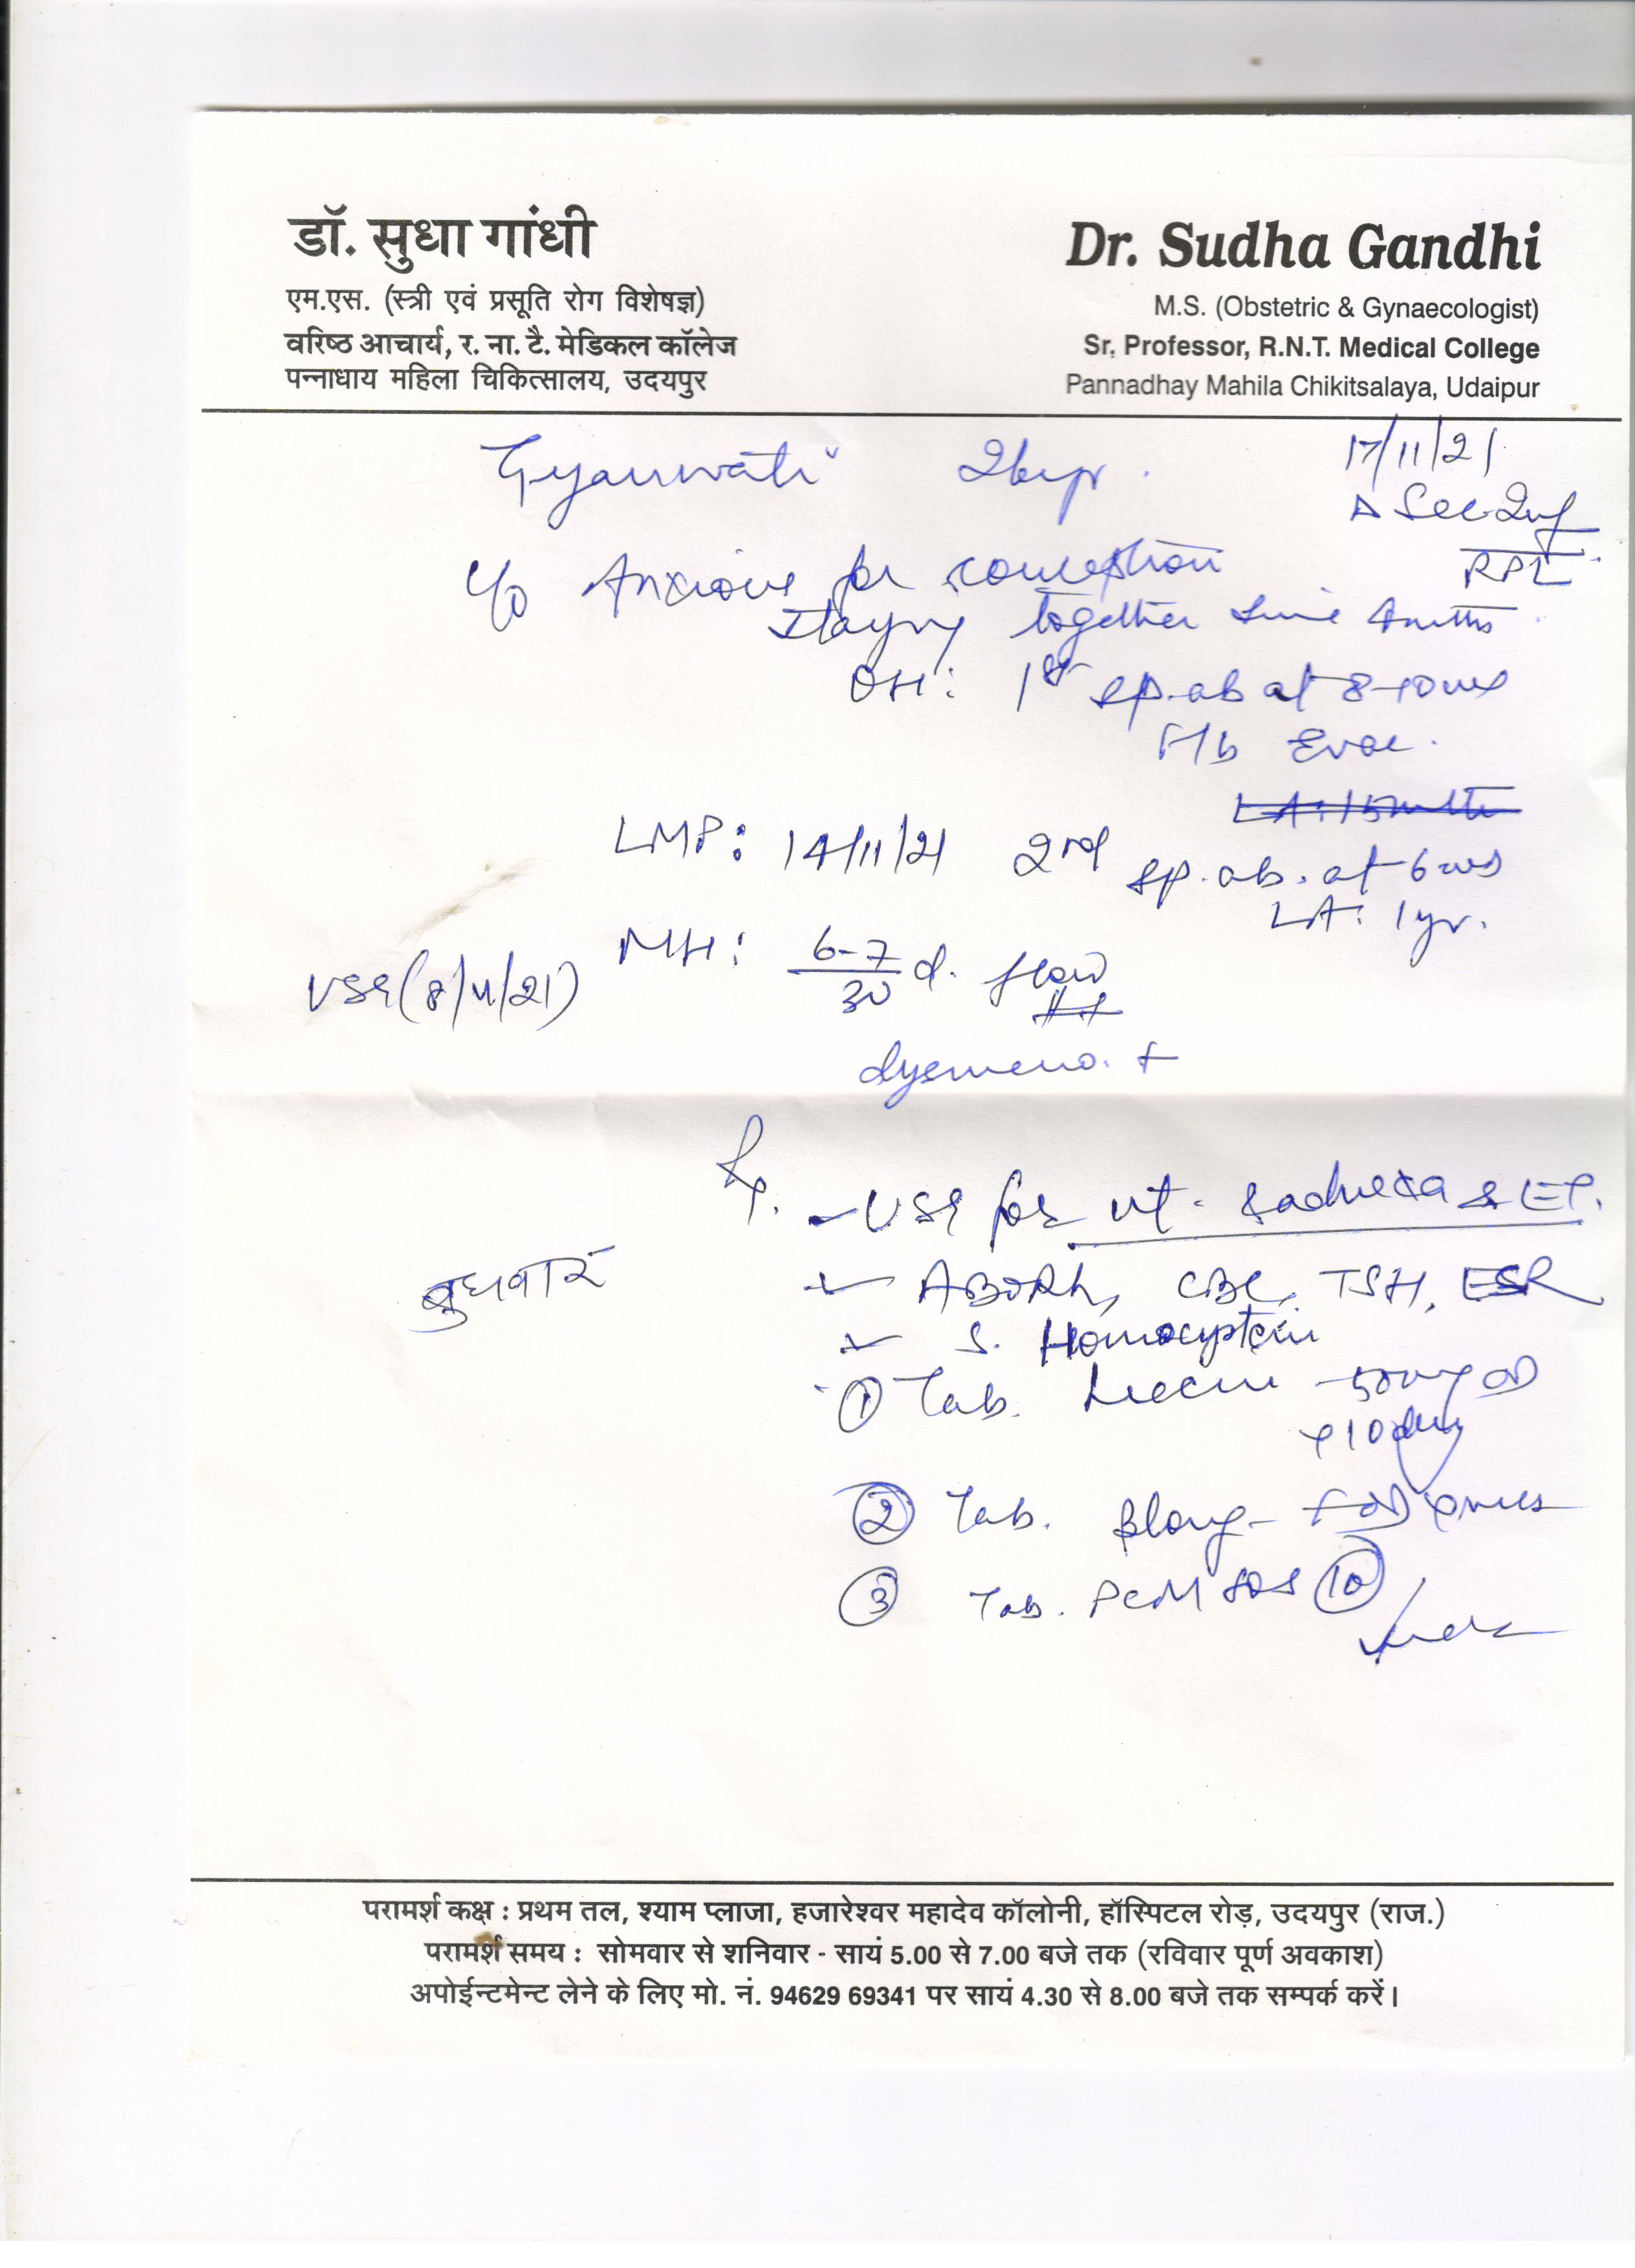 डॉ. सुधा गांधी
एम.एस. (स्त्री एवं प्रसूति रोग विशेषज्ञ)
वरिष्ठ आचार्य, र. ना. टै. मेडिकल कॉलेज
पन्नाधाय महिला चिकित्सालय, उदयपुर
Dr. Sudha Gandhi
M.S. (Obstetric & Gynaecologist)
Sr. Professor, R.N.T. Medical College
Pannadhay Mahila Chikitsalaya, Udaipur
Gyanwati 26yr.
17/11/21
Δ Sec Inf
RPL
c/o Anxious for conception
Staying together since
OH: 1st sp. ab at 8-10 wks
f/b Evac.
LMP: 14/11/21 2nd sp. ab. at 6 wks
LA: 1yr.
MH: 6-7/30 d. flow
USG (8/11/21)
dysmeno. +
Rp. - USG for ut. & adnexa & ET.
बुधवार
- ABORh, CBC, TSH, ESR
- S. Homocystein
① Tab. 50mg OD
x 10 days
② Tab. - 1 OD
③ Tab. PCM SOS ⑩
परामर्श कक्ष : प्रथम तल, श्याम प्लाजा, हजारेश्वर महादेव कॉलोनी, हॉस्पिटल रोड़, उदयपुर (राज.)
परामर्श समय : सोमवार से शनिवार - सायं 5.00 से 7.00 बजे तक (रविवार पूर्ण अवकाश)
अपोईन्टमेन्ट लेने के लिए मो. नं. 94629 69341 पर सायं 4.30 से 8.00 बजे तक सम्पर्क करें।